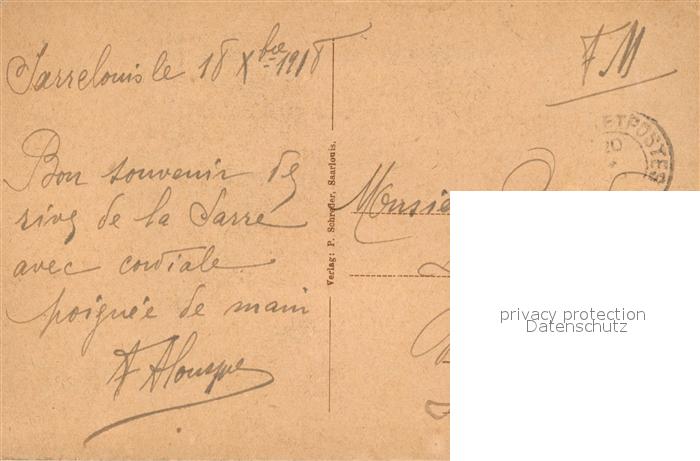 Sarrelouis le 18 Xbre 1918
Bon souvenir des
rives de la Sarre
avec cordiale
poignée de main
FM
Verlag: P. Schreder, Saarlouis.
ET POSTES
20
privacy protection
Datenschutz